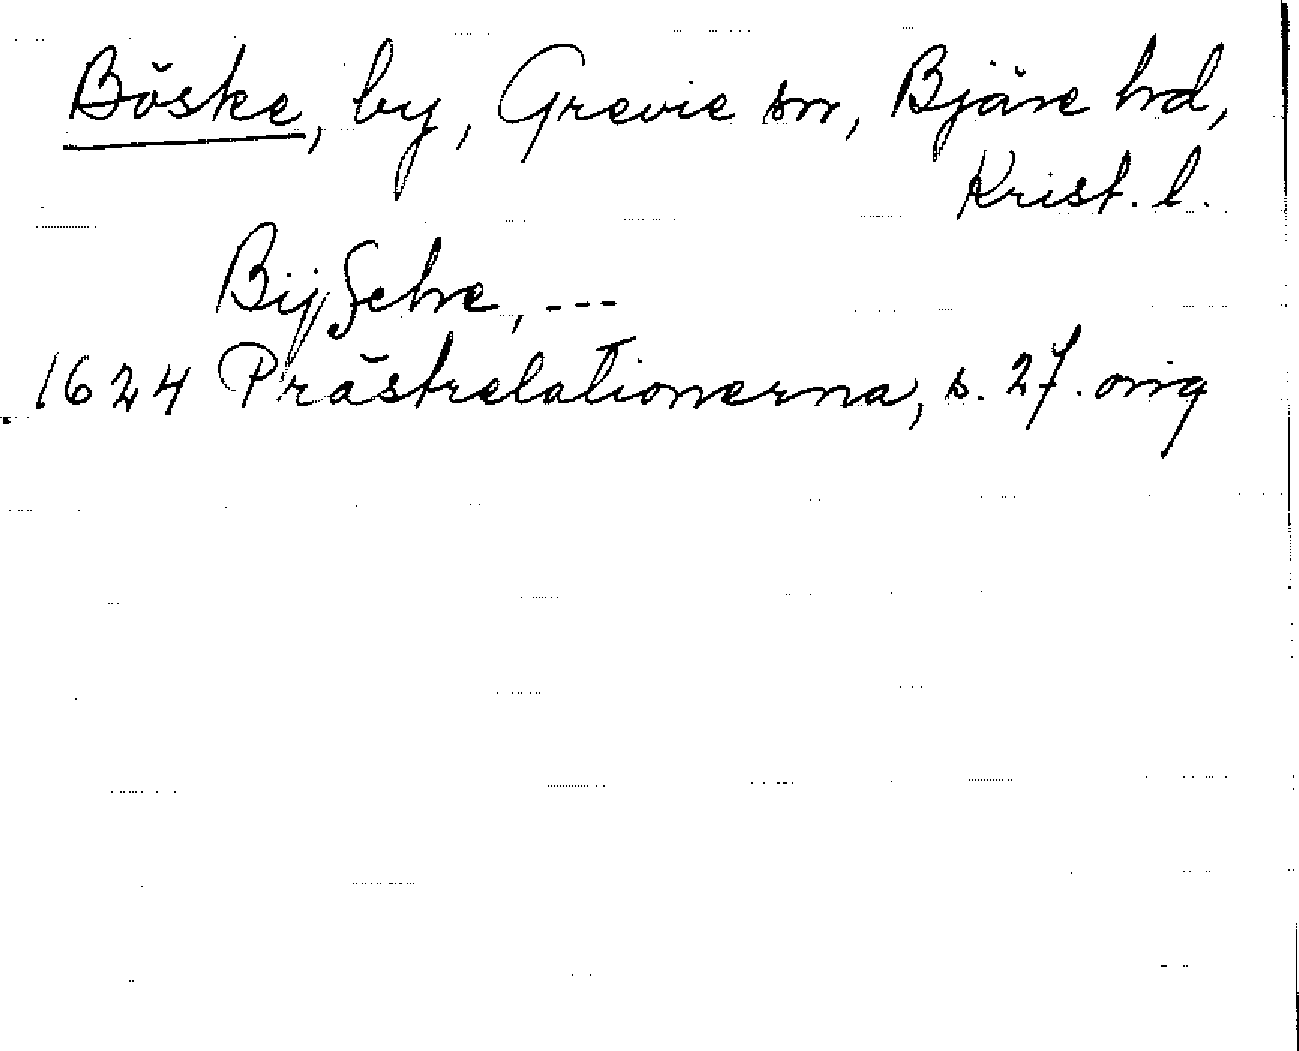 Böske, by, Grevie sn, Bjäre hd,
Krist. l.
Bijsche, ---
1624 Prästrelationerna, s. 27. orig